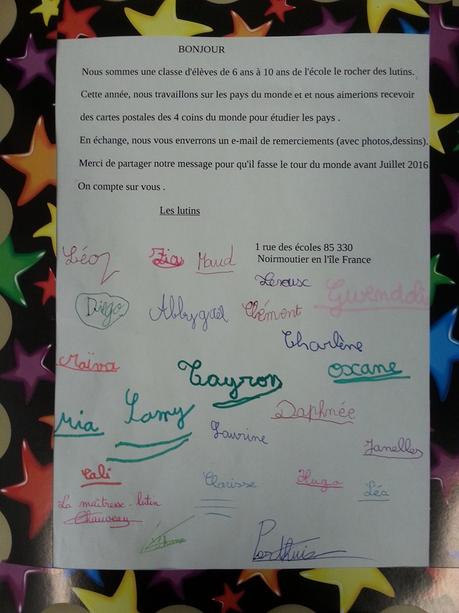 BONJOUR
Nous sommes une classe d'élèves de 6 ans à 10 ans de l'école le rocher des lutins.
Cette année, nous travaillons sur les pays du monde et et nous aimerions recevoir
des cartes postales des 4 coins du monde pour étudier les pays .
En échange, nous vous enverrons un e-mail de remerciements (avec photos,dessins).
Merci de partager notre message pour qu'il fasse le tour du monde avant Juillet 2016
On compte sur vous .
Les lutins
1 rue des écoles 85 330
Noirmoutier en l'île France
Léo
Zia
Maud
Gwendoli
Diego
Abbygaël
Clémont
Charlène
Maïva
Tayron
oxcane
Mia
Samy
Daphnée
Laurine
Janelles
Lali
Clarisse
Hugo
Léa
La maîtresse-lutin